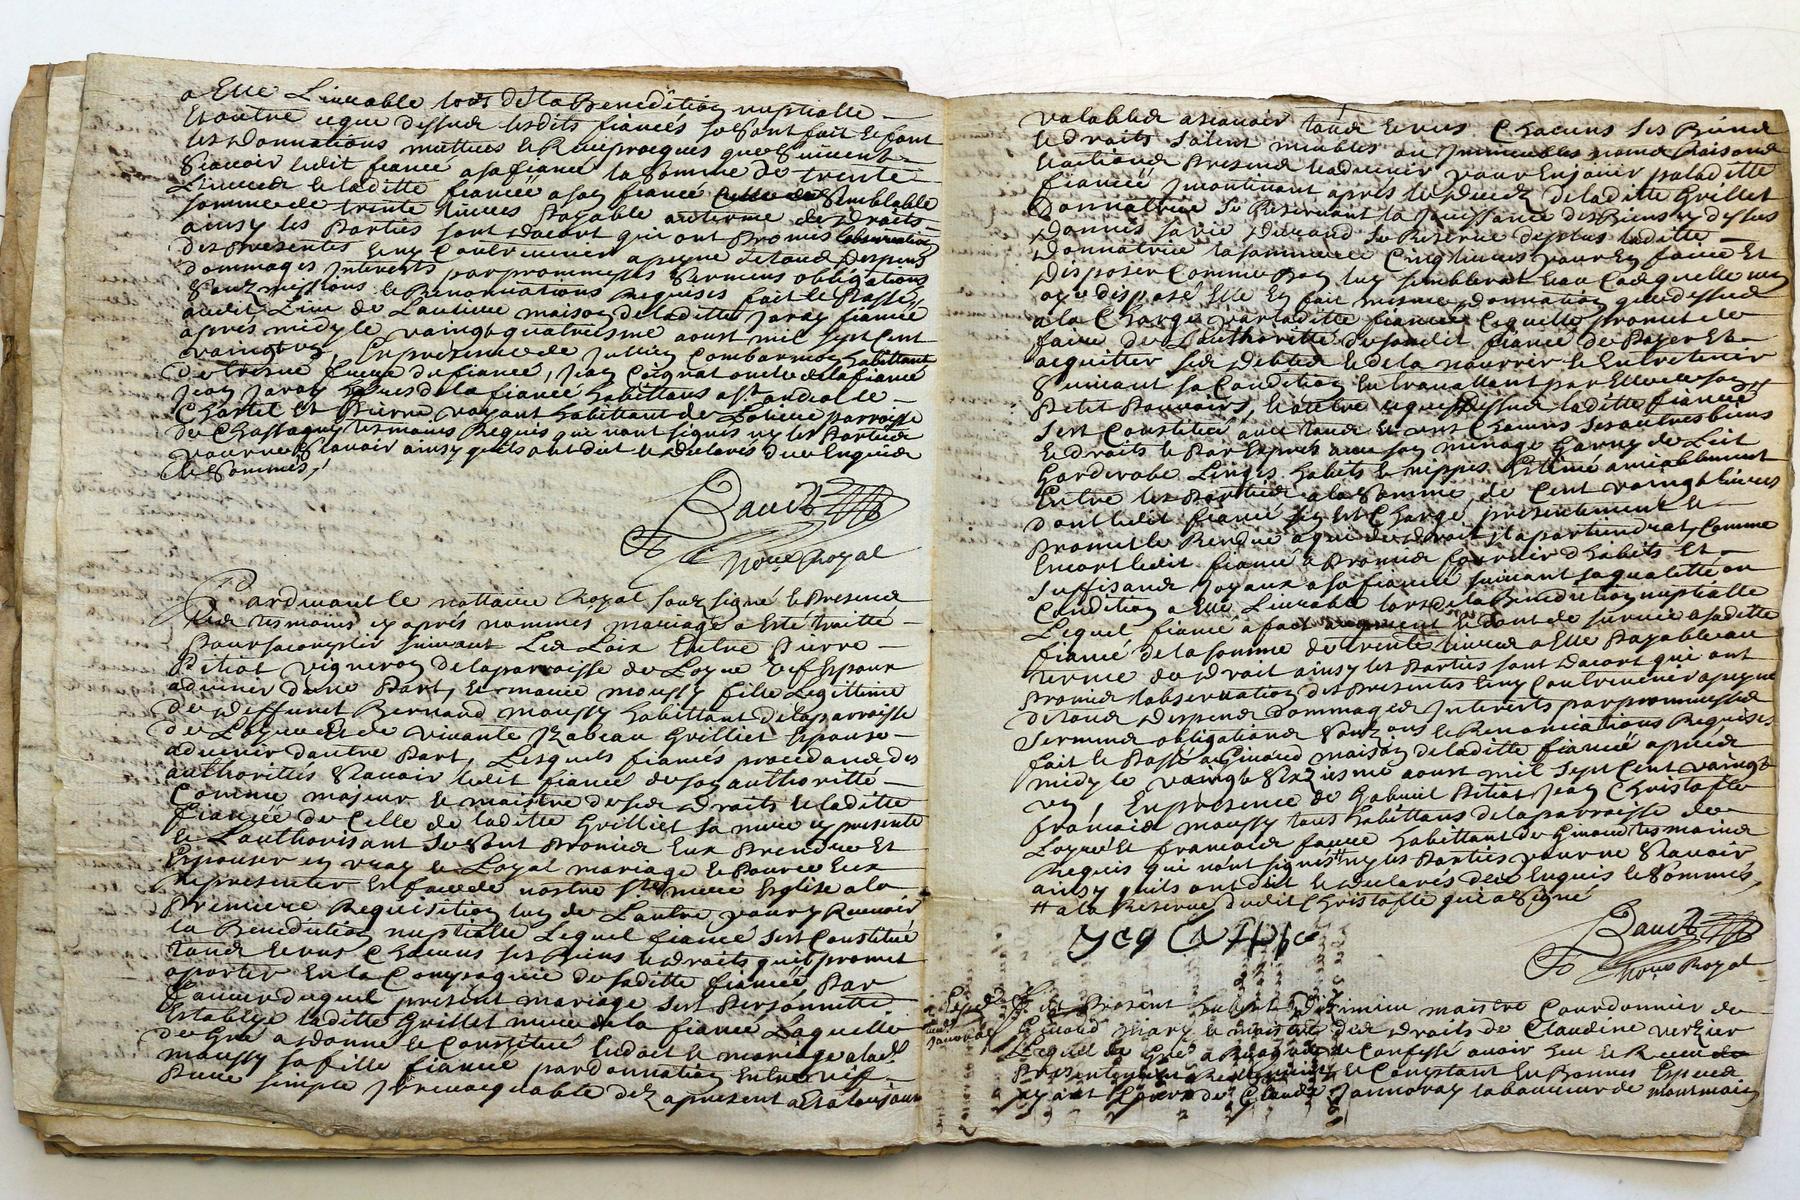 a Elle Liurable lors de la Benediction nuptialle
Et outre ce que dessus lesdits fiancés se sont fait Et font
les donnations mutues et Reciproques que Suiuent
Scauoir ledit fiancé a sa fiancé la somme de trente
Liures et laditte fiancée a son fiancé Semblable
somme de trente liures payable au terme de droits
ainsy les Parties sont dacort qui ont Promis lobseruation
des presentes Et ny Contreuenir a peyne de tous despens
dommages Interets par prommesses Sermens obligations
Soumissions et Renontiations Requises fait et Passé
audit Lieu de maison de laditte Jaray fiancée
apres midy le vaingt quatriesme aoust mil sept Cent
vaingt vn, En presence de Jullien Combarmon habittant
de frere du fiancé, Jean Coignat oncle de la fiancé
Jean Jaray de la fiancé habittans a St andeol le
Chastel Et Pierre voyant habittant de parroisse
de Chassagny tesmoins Requis qui nont signés ny les Parties
pour ne Scauoir ainsy quils ont dit et declarés de ce Enquis
et Sommés,
Baudt
Nore Royal
Pardeuant le nottaire Royal soubsigné et Presens
Les tesmoins cy apres nommes mariage a Esté traitté
Pour sacomplir suiuant Les Loix Entre Pierre
Pitiot vigneron de la parroisse de Loyre Espoux
aduenir dune Part, Et marie moussy fille Legittime
de deffunct Bernard moussy habittant de la parroisse
de Loyre Et de viuante Izabeau Grilliet Espouse
aduenir dautre Part, Lesquels fiancés procedans des
authorittes Scauoir ledit fiancé de son authoritte
Comme majeur et maistre de ses droits et laditte
fiancée de Celle de laditte Grilliet sa mere cy presente
Et Lauthorisant Se sont Promis Eux Prendre Et
Espouser en vray et Loyal mariage Et Pource Eux
representer En face de nostre Ste mere Eglise a la
Premiere Requisition lun de Lautre pour y Receuoir
la Benediction nuptialle Lequel fiancé sest Constitué
tous et vns Chacuns ses Biens et droits quil promet
aporter En la Compagnie de saditte fiancée, Par
faueur duquel present mariage sest Personnelle
Establye laditte Grillet mere de la fiancée Laquelle
de Gre a donné et Constitué En dot et mariage a lad.
moussy sa fille fiancée par donnation Entre vif
Pure simple Irreuocquable dez a present a Et a tousjours
valable a scauoir tous et vns Chacuns ses Biens
et droits soient meubles ou Immeubles noms Raisons
Et actions Presens et aduenir pour En jouir par laditte
fiancée Incontinent apres le deces de laditte Grillet
Donnatrice se Reseruant la Jouissance des Biens cy dessus
donnés sa vie durand Se Reserue de plus laditte
donnatrice la somme de Cinq liures pour En faire Et
disposer Comme Bon luy semblerat Et au Cas quelle nen
aye disposé Elle En fait mesme donnation que dessus
a la Charge par laditte fiancée Laquelle promet de
faire de Lauthoritte de sondit fiancé de Payer Et
acquitter ses debtes et de la nourrir et Entretenir
Suiuant sa Condition En trauaillant par Elle de son
Petit Pouuoirs, Et outre ce que dessus laditte fiancée
sest Constitué aussi tous Et vns Chacuns ses autres biens
et droits et Par Expres son menage Garny de Lict
Garderobe Linges habits et nippes Estimé amiablement
Entre les Parties a la somme de Cent vaingt liures
dont ledit fiancé sen Est Chargé presentement et
Promet le Rendre a qui de droit Il apartiendrat, Comme
Encort ledit fiancé a Promis fournir dhabits Et
suffisans Joyaux a sa fiancée suiuant sa qualitté ou
Condition a Elle Liurable lors de la Benediction nuptialle
Lequel fiancé a fait augment et dont de suruie a saditte
fiancé de la somme de trente liures a Elle Payable au
terme de droit ainsy les Parties sont dacort qui ont
Promis lobseruation des presentes Et ny Contreuenir a peyne
de tous despens dommages Interets par prommesses
Sermens obligations Soumissions et Renonciations Requises
fait et Passé a Giuord maison de laditte fiancée apres
midy le vaingt Sixiesme aoust mil sept Cent vaingt
vn, En presence de Gabriel Pitiot, Jean Christofle
francois moussy tous habittans de la parroisse de
Loyre Et francois faure habittant de Giuord tesmoins
Requis qui nont signés # ny les Parties pour ne Scauoir
ainsy quils ont dit et declarés de ce Enquis et Sommés
# a la Reserue dudit Christofle qui a Signé
Baudt
Nore Royal
Present maistre Courdonnier de
Giuord mary et maistre des droits de Claudine verzier
Lequel de Gré a et Confessé auoir heu et Receu
Presentement et Contant En Bonnes Especes
ayant Cours de Claude Jannoray laboureur de